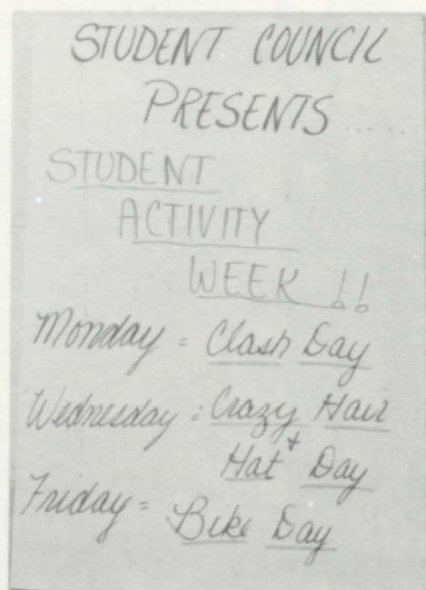 STUDENT COUNCIL
PRESENTS .....
STUDENT
ACTIVITY
WEEK !!
Monday = Clash Day
Wednesday = Crazy Hair
+
Hat Day
Friday = Bike Day